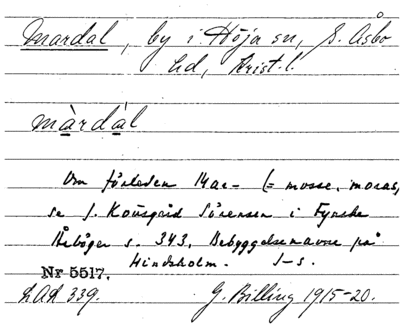 Mardal, by i Höja sn, S. Åsbo
hd, Krist. l.
màrdál
Om förleden Mar- (= mosse, moras,
se J. Kousgård Sörensen i Fynske
Årböger s. 343. Bebyggelsenavne på
Hindsholm. J-s.
Nr 5517.
LAL 339. G. Billing 1915-20.